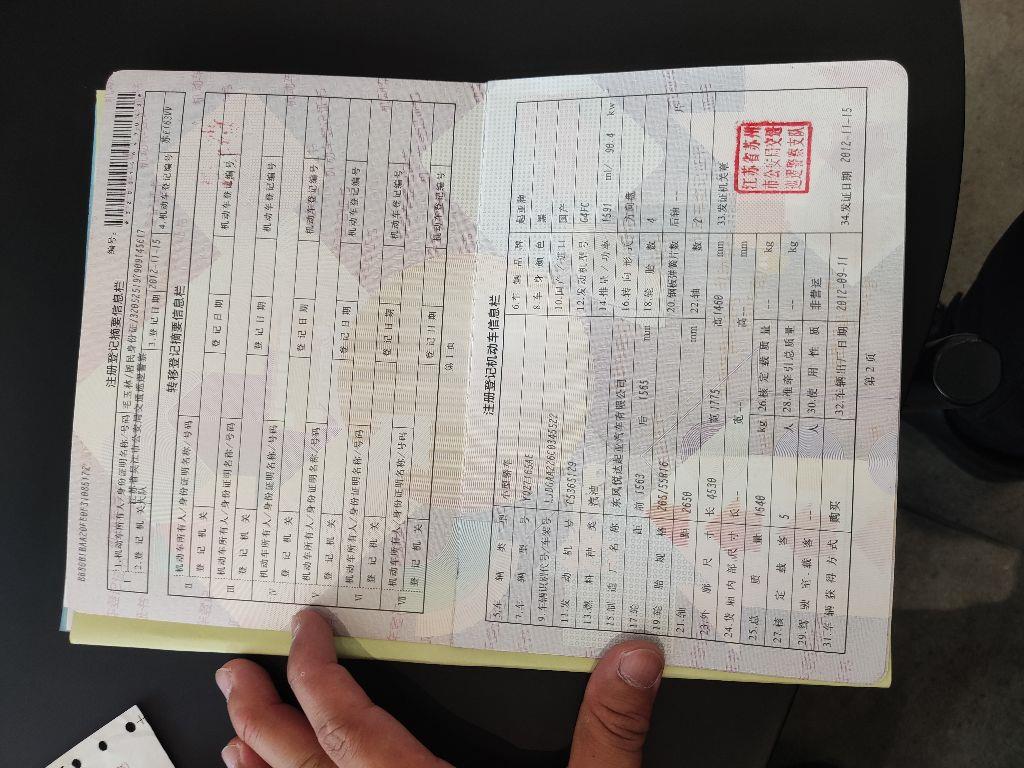 注册登记摘要信息栏
编号：
1.机动车所有人/身份证明名称/号码
2.登记机关
3.登记日期 2012-11-15
4.机动车登记编号
转移登记摘要信息栏
II 机动车所有人/身份证明名称/号码
登记机关 登记日期 机动车登记编号
III 机动车所有人/身份证明名称/号码
登记机关 登记日期 机动车登记编号
IV 机动车所有人/身份证明名称/号码
登记机关 登记日期 机动车登记编号
V 机动车所有人/身份证明名称/号码
登记机关 登记日期 机动车登记编号
VI 机动车所有人/身份证明名称/号码
登记机关 登记日期 机动车登记编号
VII 机动车所有人/身份证明名称/号码
登记机关 登记日期 机动车登记编号
第 1 页
注册登记机动车信息栏
5.车辆类型 小型轿车 6.车辆品牌 起亚牌
7.车辆型号 YQZ7165AE 8.车身颜色 黑
9.车辆识别代号/车架号 10.国产/进口 国产
11.发动机号 12.发动机型号 G4FC
13.燃料种类 汽油 14.排量/功率 1591 ml/ 90.4 kw
15.制造厂名称 东风悦达起亚汽车有限公司 16.转向形式 方向盘
17.轮距 前 1563 后 1565 mm 18.轮胎数 4
19.轮胎规格 205/55R16 20.钢板弹簧片数 后轴 -- 片
21.轴距 2650 mm 22.轴数 2
23.外廓尺寸 长 4530 宽 1775 高 1460 mm 33.发证机关章
24.货厢内部尺寸 长 -- 宽 -- 高 -- mm
25.总质量 1640 kg 26.核定载质量 -- kg
27.核定载客 5 人 28.准牵引总质量 -- kg
29.驾驶室载客 -- 人 30.使用性质 非营运
31.车辆获得方式 购买 32.车辆出厂日期 2012-09-11 34.发证日期 2012-11-15
江苏省苏州
市公安局交通
巡逻警察支队
第 2 页